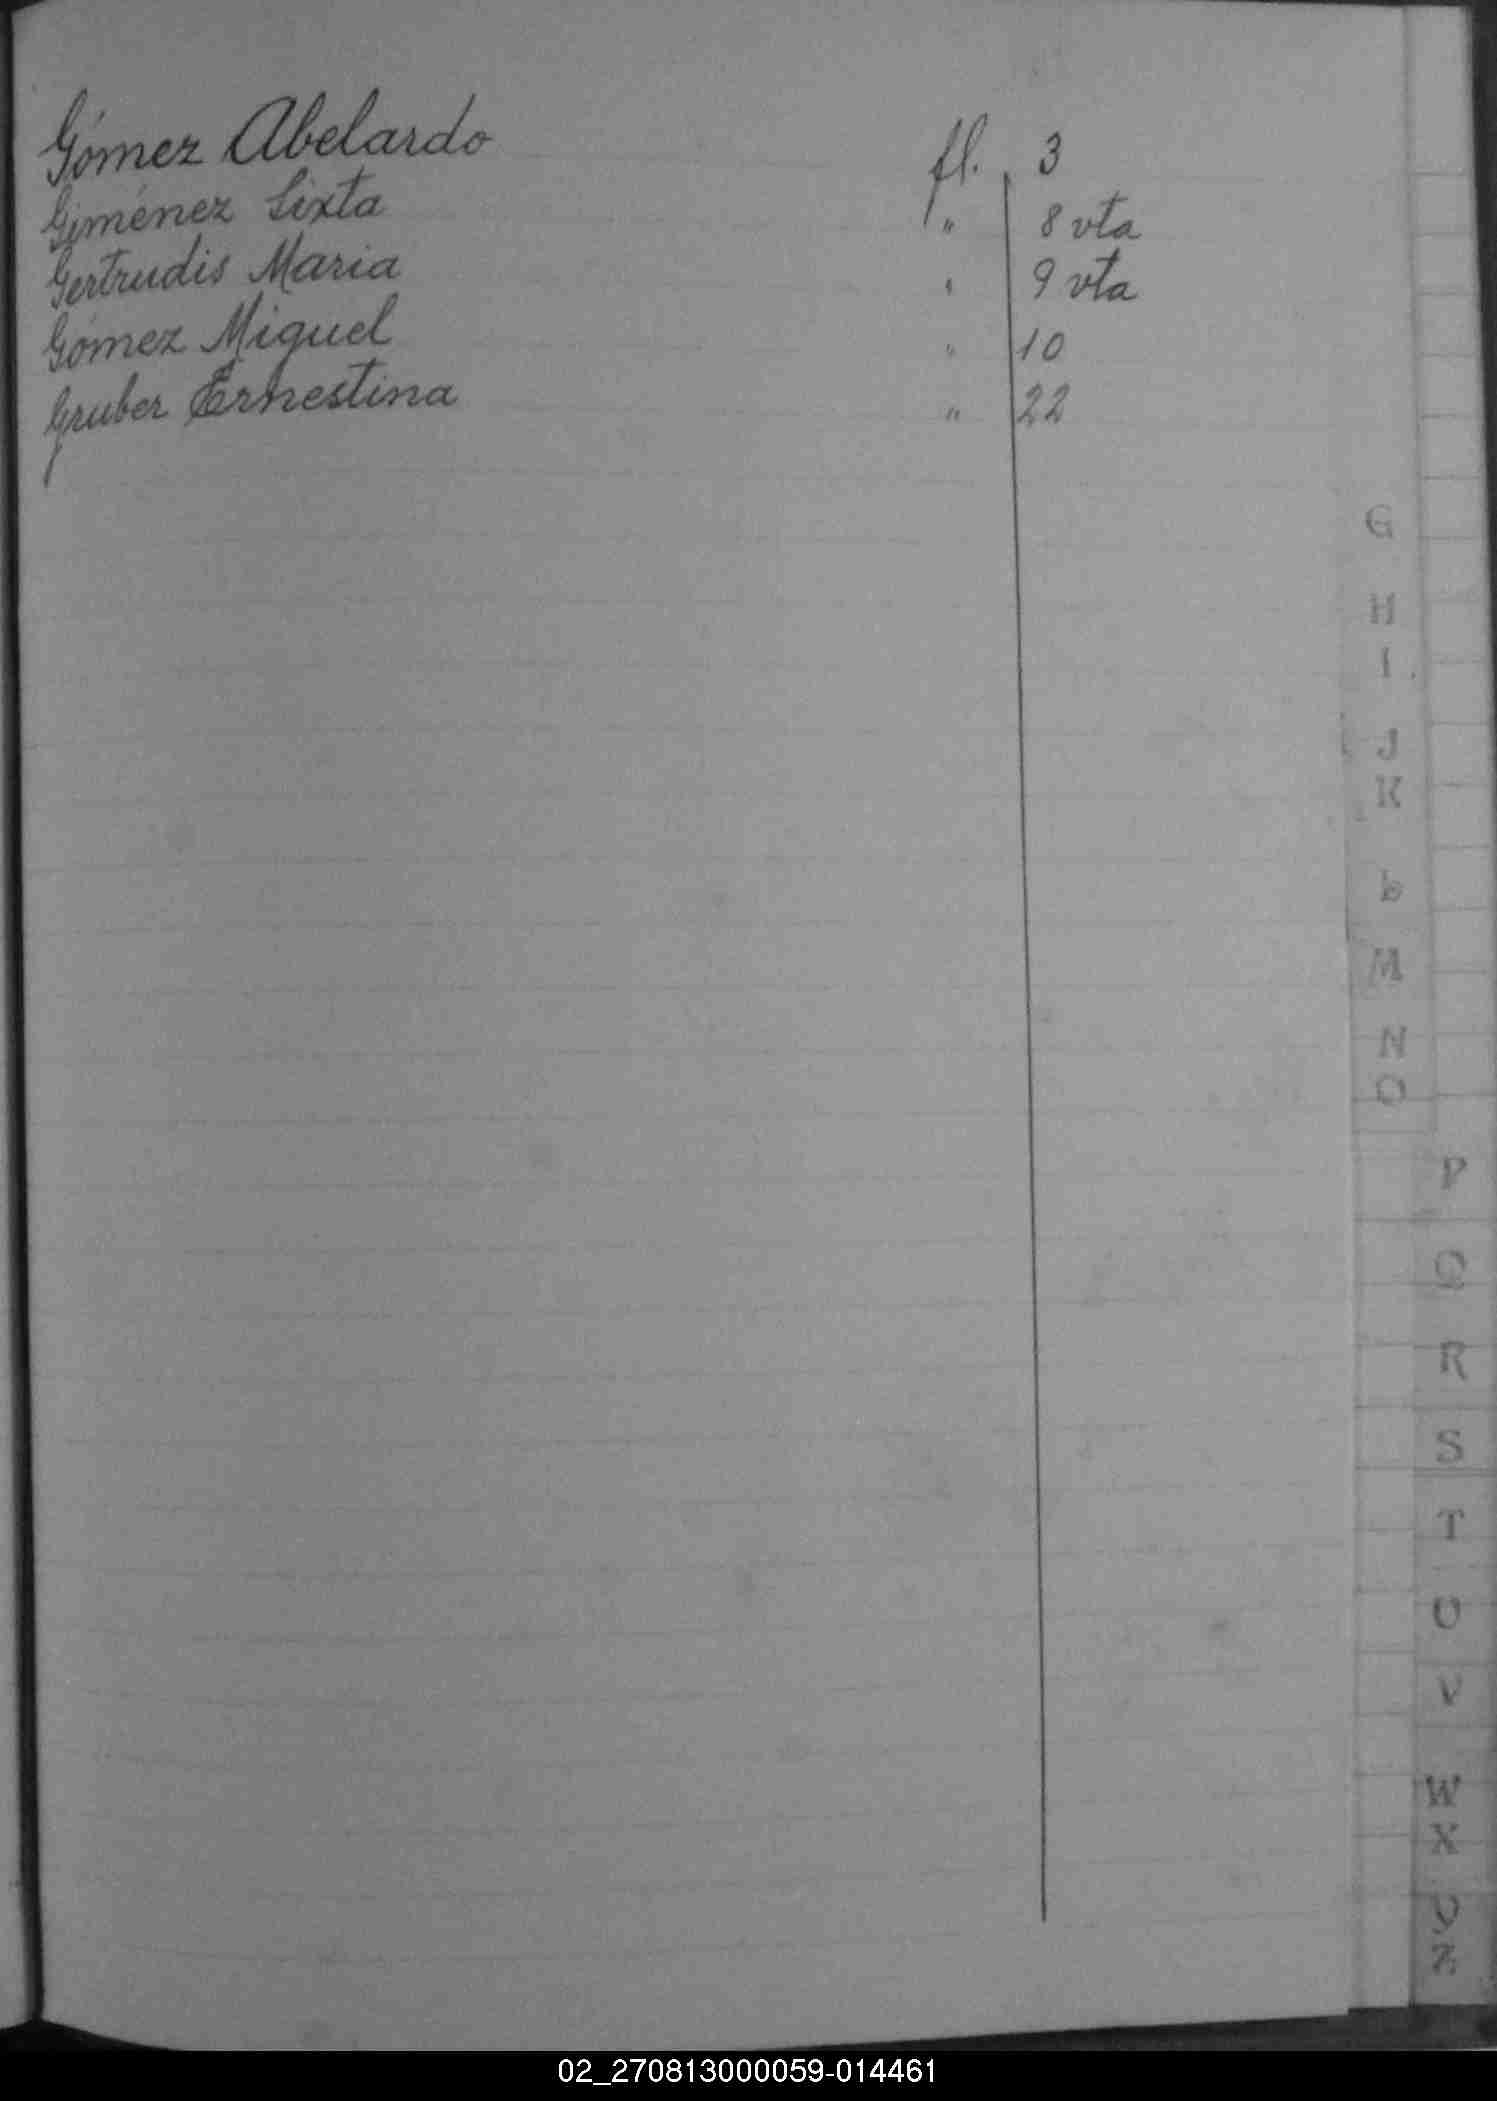 Gómez Abelardo fl. 3
Giménez Sixta " 8 vta
Gertrudis Maria " 9 vta
Gómez Miguel " 10
Gruber Ernestina " 22
G
H
I
J
K
L
M
N
O
P
Q
R
S
T
U
V
W
X
Y
Z
02_270813000059-014461